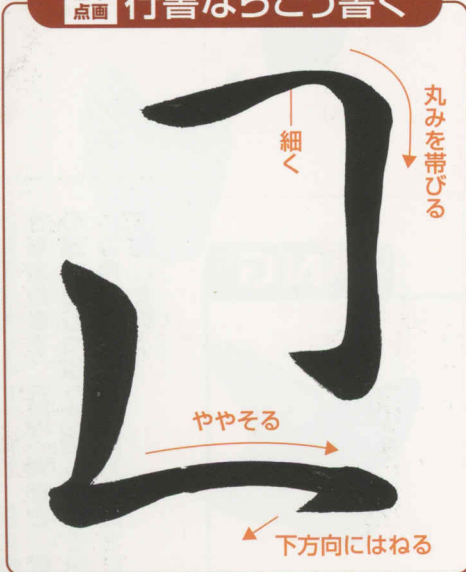 点画 行書ならこう書く
丸みを帯びる
細く
ややそる
下方向にはねる